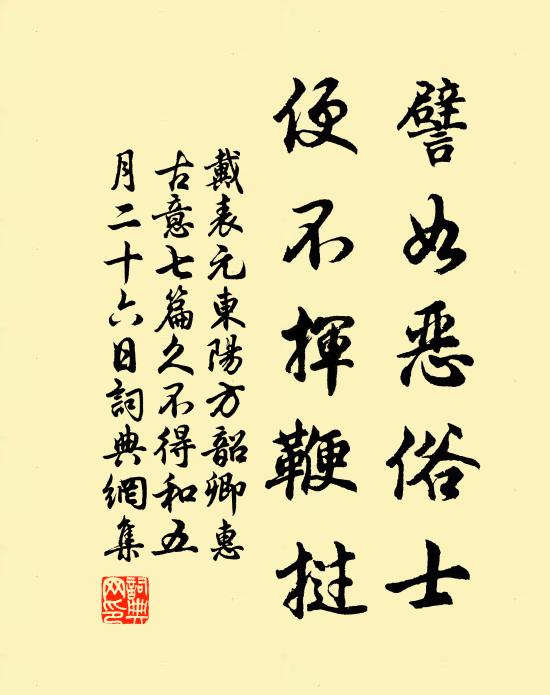 譬如惡俗士
便不揮鞭撻
戴表元東陽方韶卿惠
古意七篇久不得和五
月二十六日詞典網集
詞典網印